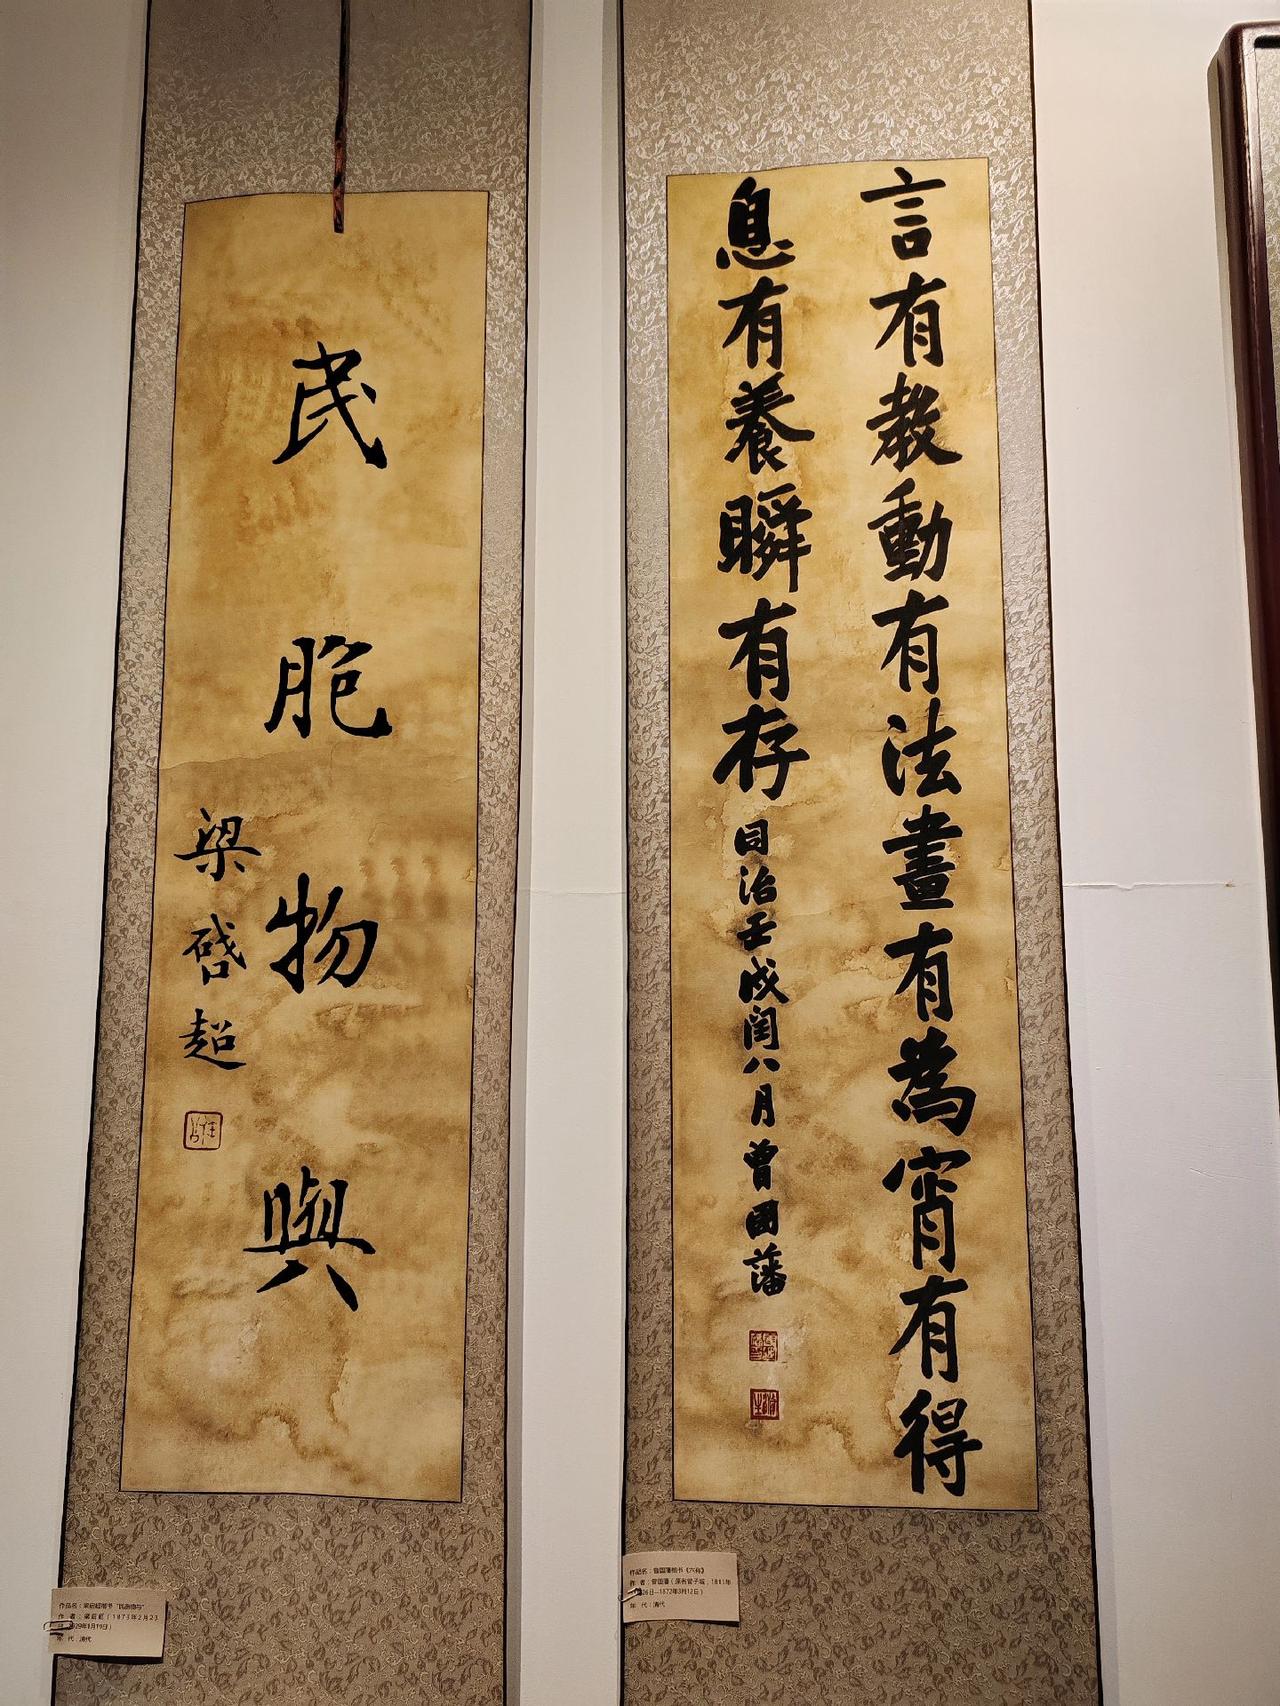 言有教動有法晝有為宵有得
息有養瞬有存
同治壬戌閏八月曾國藩
民胞物與
梁啓超
作品名：梁启超楷书“民胞物与”
作 者：梁启超（1873年2月23
1929年1月19日）
年 代：清代
作品名：曾国藩楷书《六有》
作 者：曾国藩（原名曾子城，1811年
26日—1872年3月12日）
年 代：清代